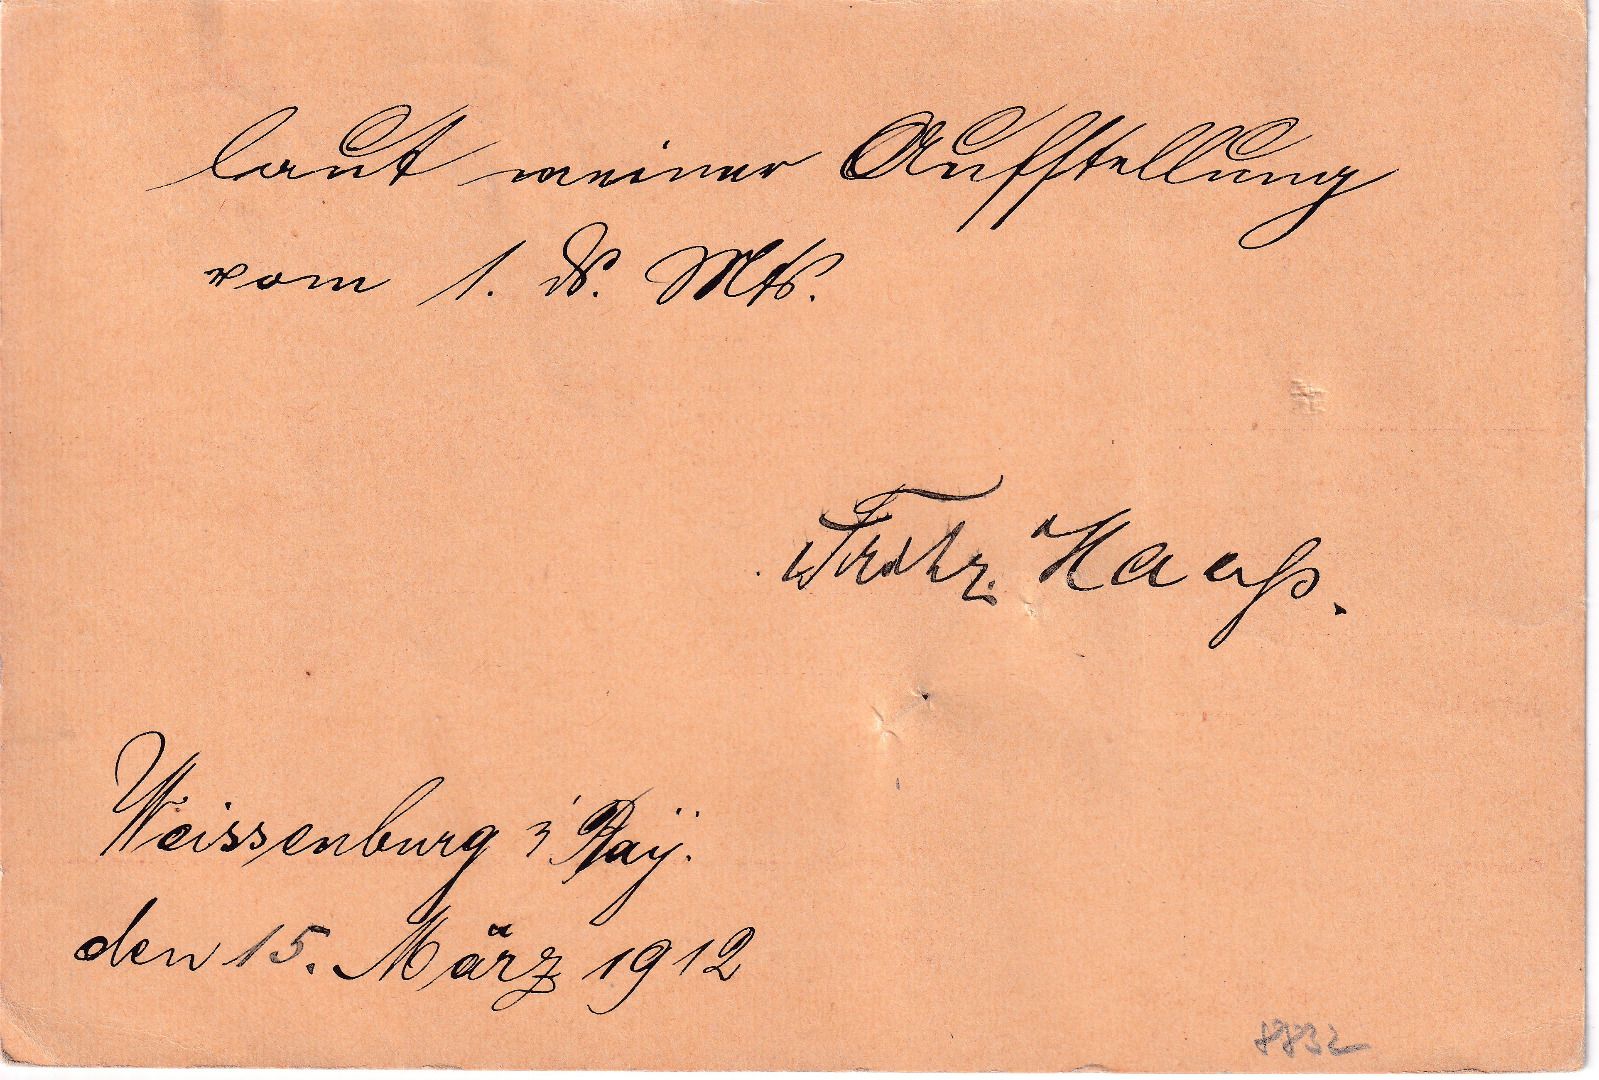 laut meiner Aufstellung
vom 1. ds. Mts.
Fritz Haaß.
Weissenburg i/Bay.
den 15. März 1912
8832